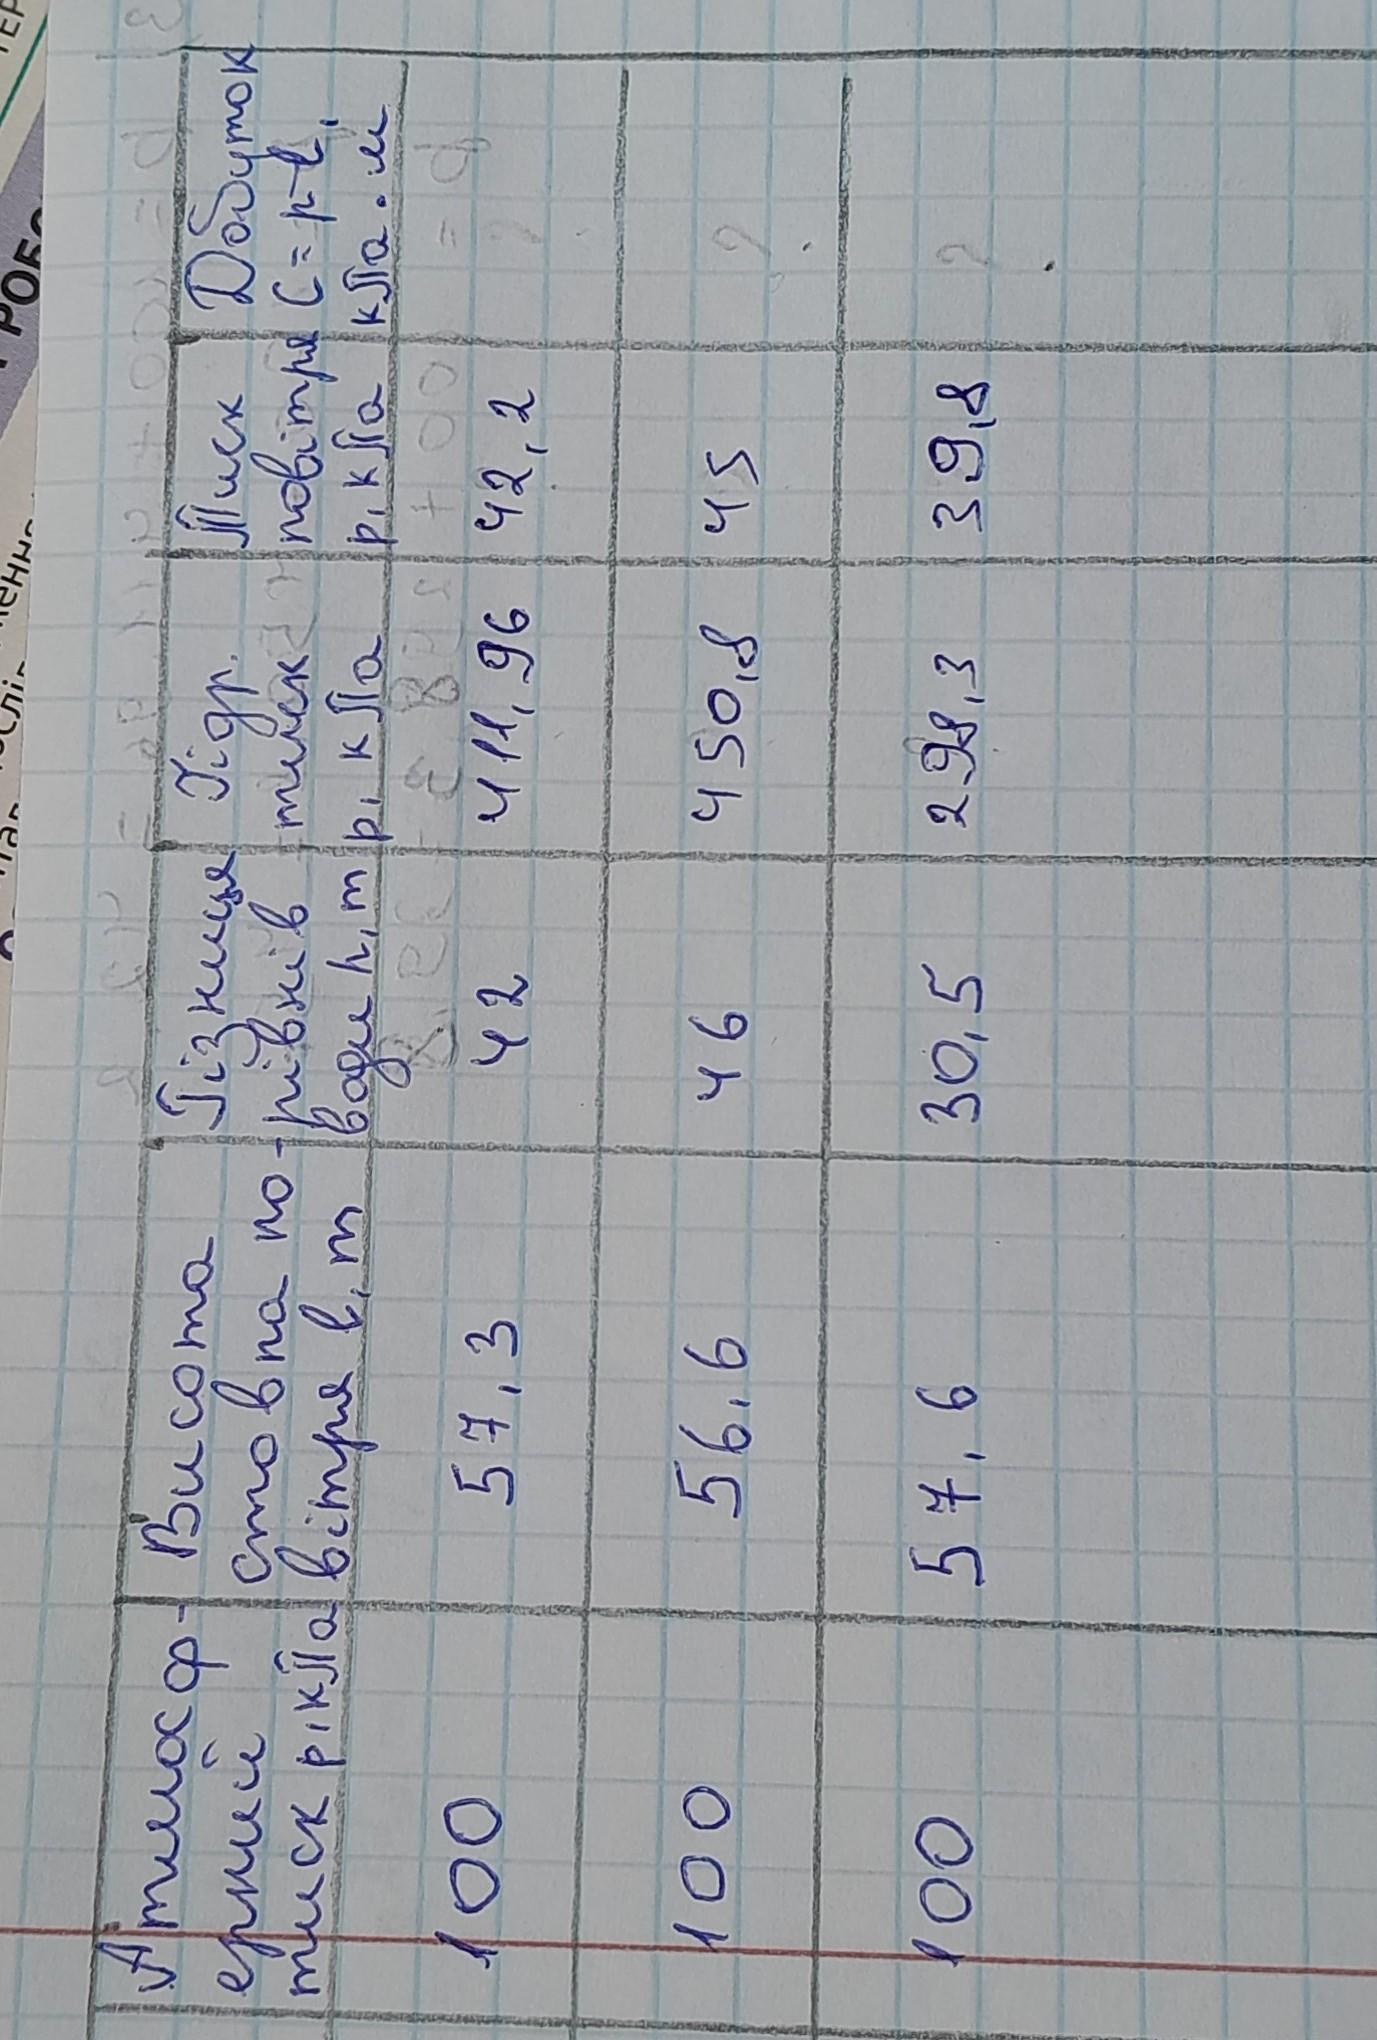 Атмосф-
ерний
тиск р, кПа
Висота
стовпа по-
вітря l, m
Різниця
рівнів
води h, m
Гідр.
тиск
р, кПа
Тиск
повітря
р, кПа
Добуток
C = pl,
кПа · м
100 57,3 42 411,96 42,2 ?
100 56,6 46 450,8 45 ?
100 57,6 30,5 298,3 39,8 ?